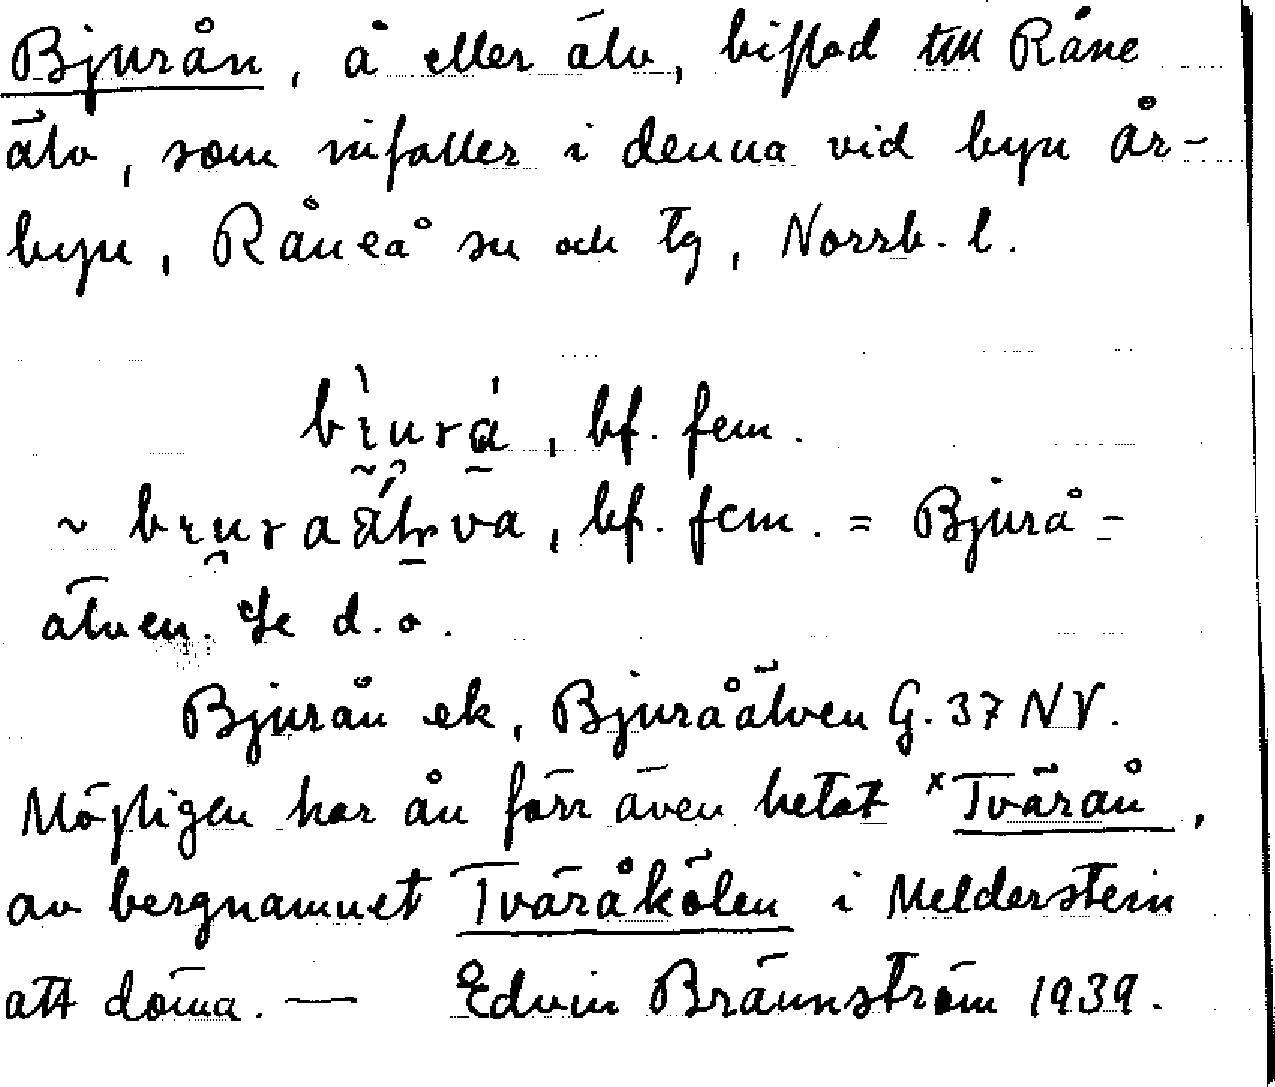 Bjurån, å eller älv, biflod till Råne
älv, som infaller i denna vid byn År-
byn, Råneå sn och tg, Norrb. l.
bı̀urá, bf. fem.
~ bıuraálva, bf. fem. = Bjurå-
älven. Se d.o.
Bjurån ek, Bjuråälven G. 37 NV.
Möjligen har ån förr även hetat *Tvärån,
av bergnamnet Tväråkölen i Melderstein
att döma. — Edvin Brännström 1939.